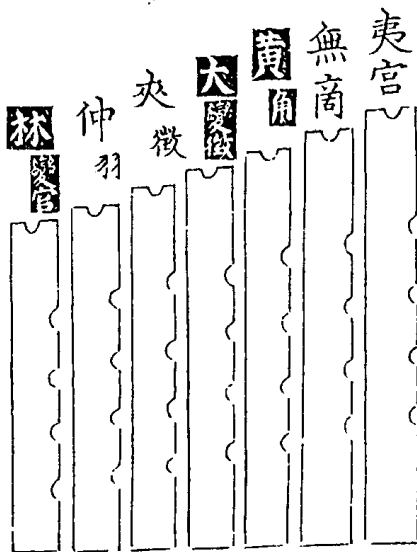 夷宫
無商
黄角
大變徵
夾徵
仲羽
林變宫